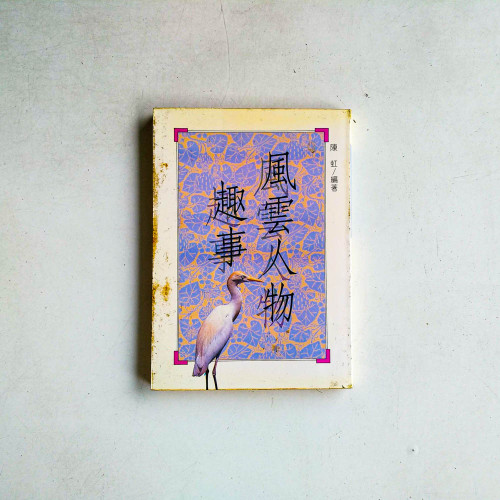 風雲人物
趣事
陳虹/編著